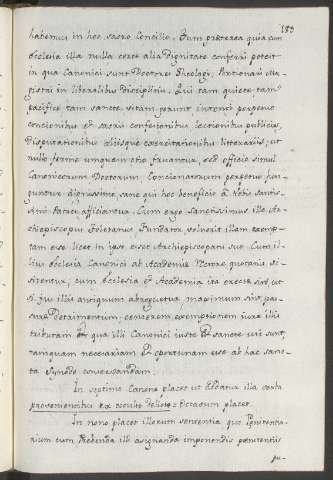 183
habemus in hoc sacro Concilio. Tum praeterea quia cum
Ecclesia illa nulla certe alia dignitate conferri potest
in qua Canonici sunt Doctores Theologi, Portionarii Ma-
gistri in liberalibus disciplinis. Qui tam quietam tam
pacificam tam sanctè vitam gerunt, intenti perpetuo
concionibus et sacris confessionibus, lectionibus publicis,
disputationibus aliisque exercitationibus litterariis, ut
nullo ferme unquam otio fruantur, sed officio simul
Canonicorum Doctorum Concionatorum perpetuo fun-
guntur, dignissime sane qui hoc beneficio à vobis sanctis-
simi Patres afficiantur. Cum ergo Sanctissimus ille Ar-
chiepiscopus Toletanus, fundator, voluerit illam exemp-
tam esse licet in ipso esset Archiepiscopatu suo. Cum il-
lius Ecclesia Canonici ab Academiae Rectore quotannis vi-
sitentur, cum Ecclesia et Academia ita connexae sint, ut
si jus illis antiquum abrogetur maximum sint pas-
surae detrimentum, censerem exemptionem jure illis
tributam et qua illi Canonici juste et sanctè usi sunt,
tamquam necessariam et opportunam esse ab hac sanc-
ta Synodo conservandam.
In septimo Canone placet ut addatur illa verba
provenientibus ex occulto delicto = Octavum placet.
In nono placet illorum sententia qui Poenitentia-
rium cum Prebenda illi assignanda imponendis poenitentiis